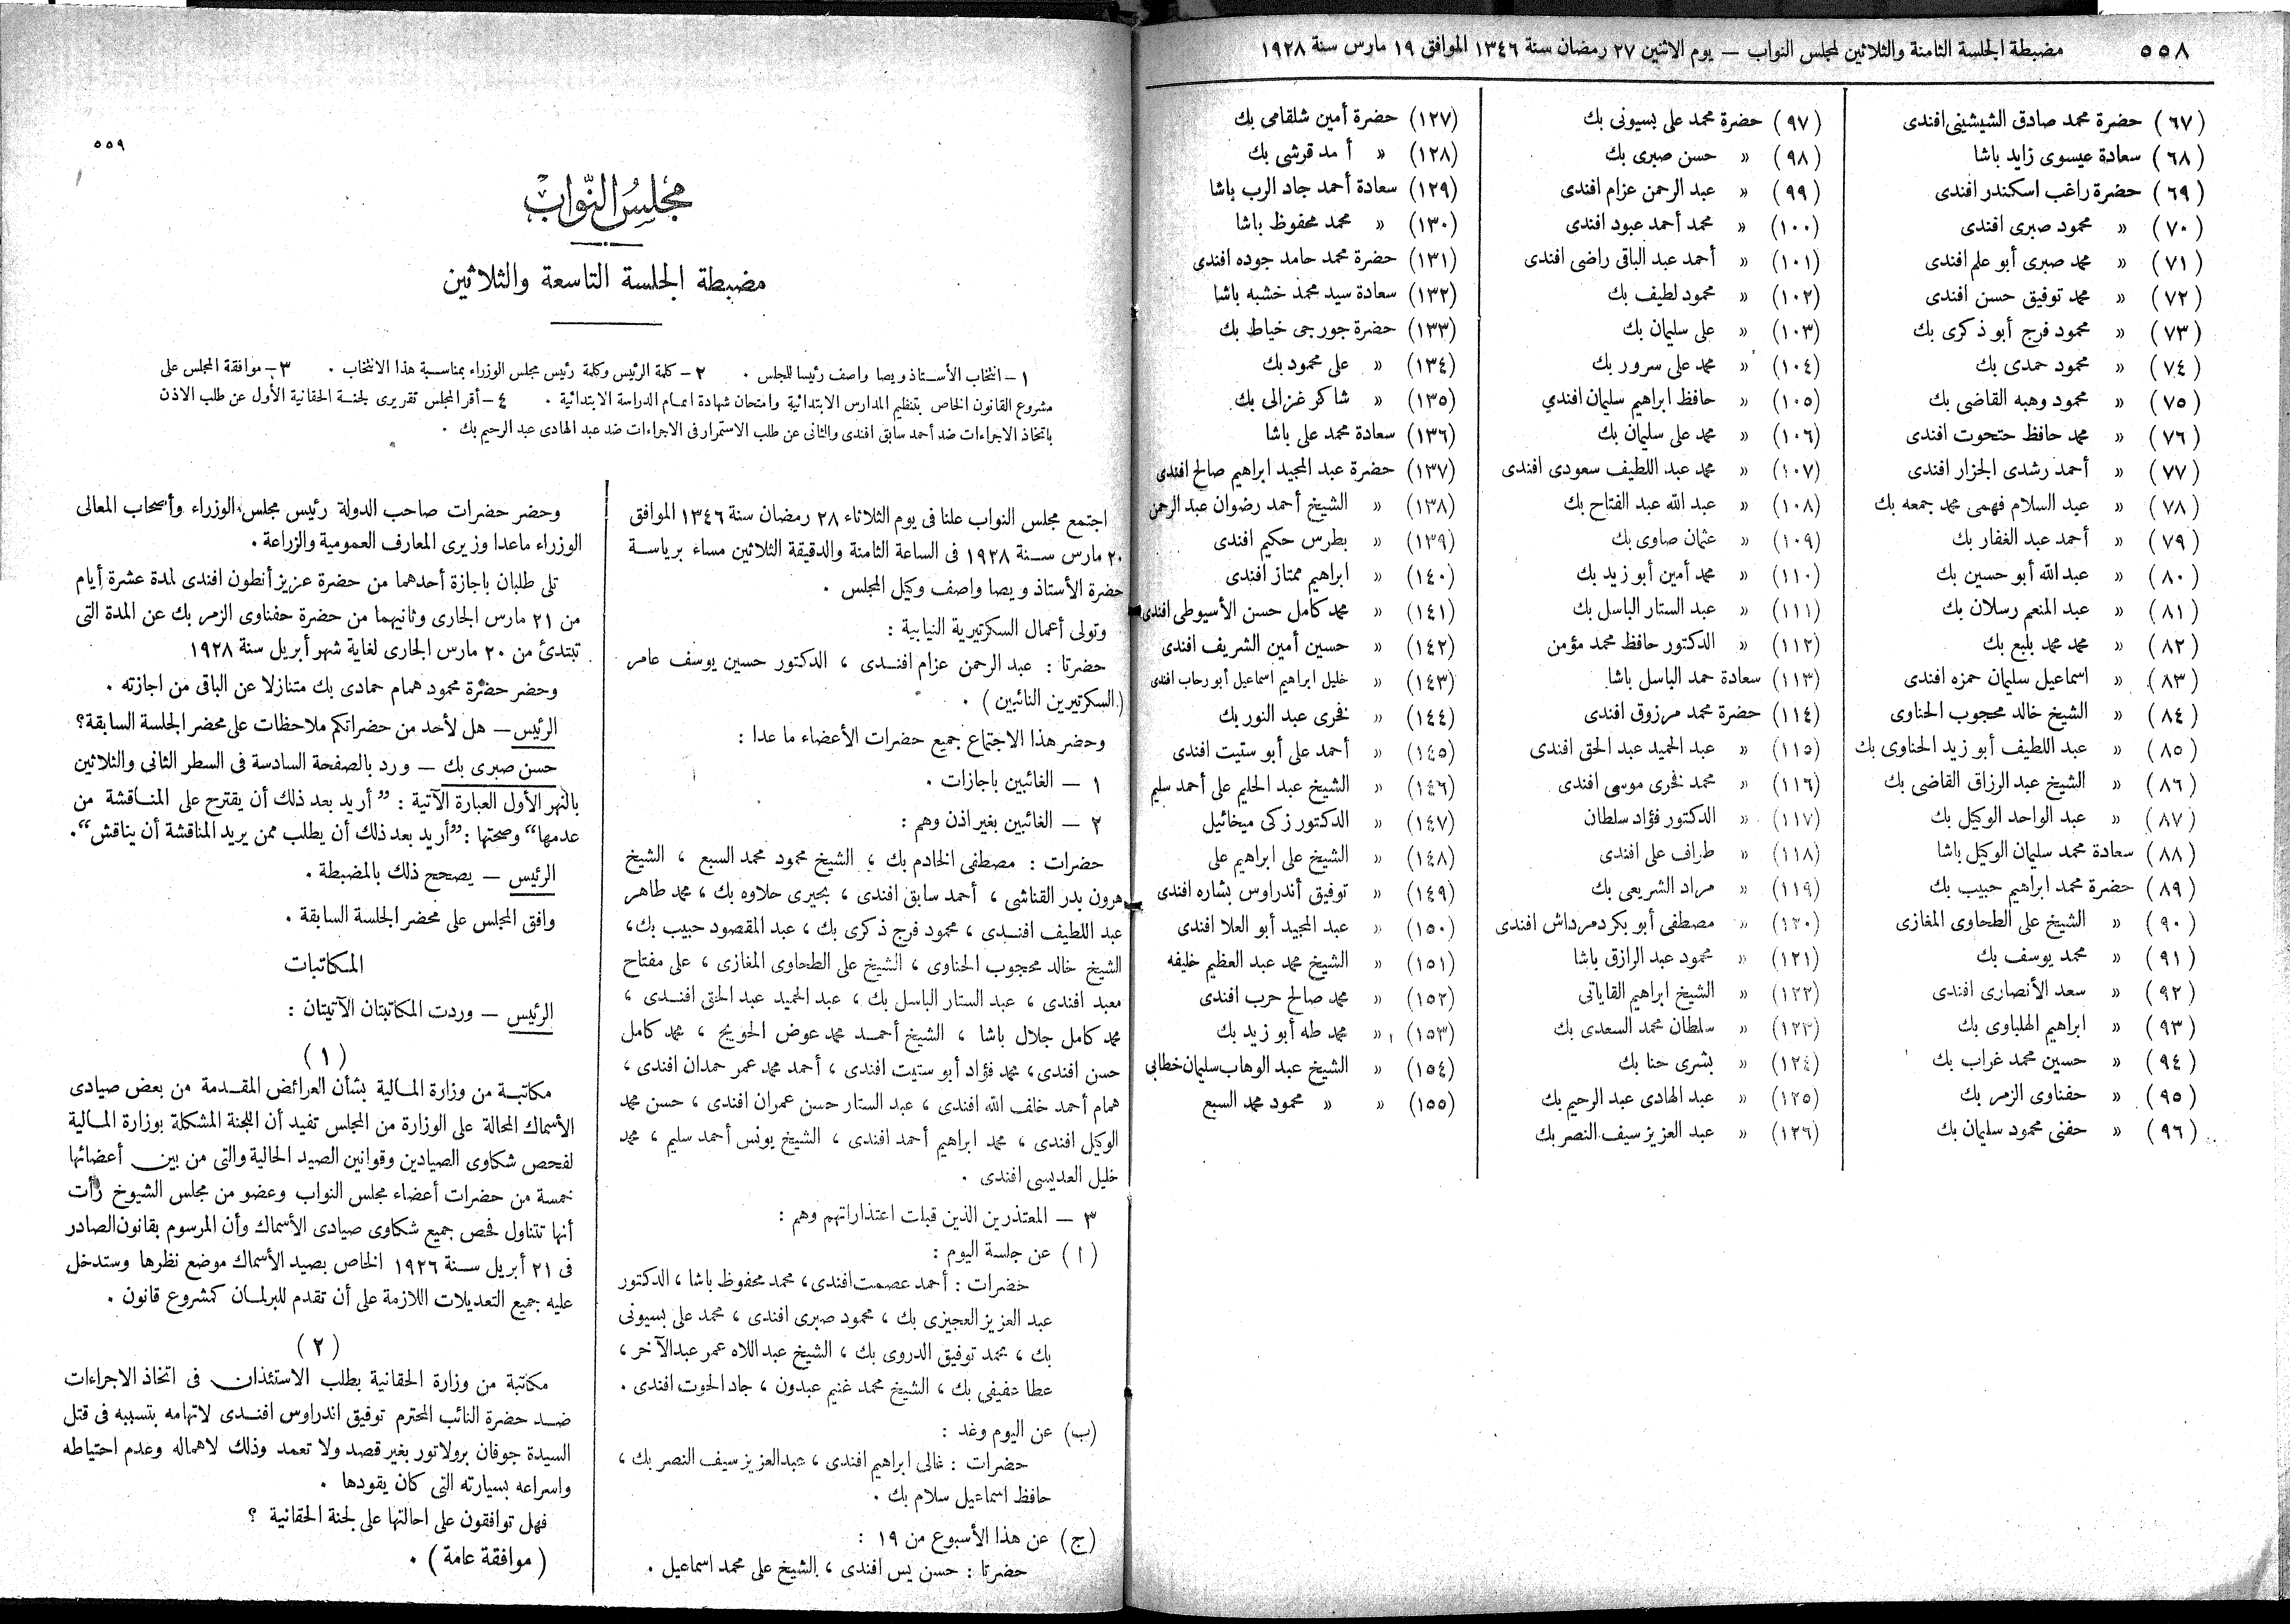 ٥٥٨
مضبطة الجلسة الثامنة والثلاثين لمجلس النواب — يوم الاثنين ٢٧ رمضان سنة ١٣٤٦ الموافق ١٩ مارس سنة ١٩٢٨
(٦٧) حضرة محمد صادق الشيشينى افندى
(٦٨) سعادة عيسوى زايد باشا
(٦٩) حضرة راغب اسكندر افندى
(٧٠) » محمود صبرى افندى
(٧١) » محمد صبرى أبو علم افندى
(٧٢) » محمد توفيق حسن افندى
(٧٣) » محمود فرج أبو ذكرى بك
(٧٤) » محمود حمدى بك
(٧٥) » محمود وهبه القاضى بك
(٧٦) » محمد حافظ حتحوت افندى
(٧٧) » أحمد رشدى الجزار افندى
(٧٨) » عبد السلام فهمى محمد جمعه بك
(٧٩) » أحمد عبد الغفار بك
(٨٠) » عبد الله أبو حسين بك
(٨١) » عبد المنعم رسلان بك
(٨٢) » محمد محمد بليع بك
(٨٣) » اسماعيل سليمان حمزه افندى
(٨٤) » الشيخ خالد محجوب الحناوى
(٨٥) » عبد اللطيف أبو زيد الحناوى بك
(٨٦) » الشيخ عبد الرزاق القاضى بك
(٨٧) » عبد الواحد الوكيل بك
(٨٨) سعادة محمد سليمان الوكيل باشا
(٨٩) حضرة محمد ابراهيم حبيب بك
(٩٠) » الشيخ على الطحاوى المغازى
(٩١) » محمد يوسف بك
(٩٢) » سعد الأنصارى افندى
(٩٣) » ابراهيم الهلباوى بك
(٩٤) » حسين محمد غراب بك
(٩٥) » حفناوى الزمر بك
(٩٦) » حفنى محمود سليمان بك
(٩٧) حضرة محمد على بسيونى بك
(٩٨) » حسن صبرى بك
(٩٩) » عبد الرحمن عزام افندى
(١٠٠) » محمد أحمد عبود افندى
(١٠١) » أحمد عبد الباقى راضى افندى
(١٠٢) » محمود لطيف بك
(١٠٣) » على سليمان بك
(١٠٤) » محمد على سرور بك
(١٠٥) » حافظ ابراهيم سليمان افندي
(١٠٦) » محمد على سليمان بك
(١٠٧) » محمد عبد اللطيف سعودى افندى
(١٠٨) » عبد الله عبد الفتاح بك
(١٠٩) » عثمان صاوى بك
(١١٠) » محمد أمين أبو زيد بك
(١١١) » عبد الستار الباسل بك
(١١٢) » الدكتور حافظ محمد مؤمن
(١١٣) سعادة حمد الباسل باشا
(١١٤) حضرة محمد مرزوق افندى
(١١٥) » عبد الحميد عبد الحق افندى
(١١٦) » محمد فخرى موسى افندى
(١١٧) » الدكتور فؤاد سلطان
(١١٨) » طراف على افندى
(١١٩) » مراد الشريعى بك
(١٢٠) » مصطفى أبو بكر دمرداش افندى
(١٢١) » محمود عبد الرازق باشا
(١٢٢) » الشيخ ابراهيم القاياتى
(١٢٣) » سلطان محمد السعدى بك
(١٢٤) » بشرى حنا بك
(١٢٥) » عبد الهادى عبد الرحيم بك
(١٢٦) » عبد العزيز سيف النصر بك
(١٢٧) حضرة أمين شلقامى بك
(١٢٨) » أ مد قرشى بك
(١٢٩) سعادة أحمد جاد الرب باشا
(١٣٠) » محمد محفوظ باشا
(١٣١) حضرة محمد حامد جوده افندى
(١٣٢) سعادة سيد محمد خشبه باشا
(١٣٣) حضرة جورجى خياط بك
(١٣٤) » على محمود بك
(١٣٥) » شاكر غزالى بك
(١٣٦) سعادة محمد على باشا
(١٣٧) حضرة عبد المجيد ابراهيم صالح افندى
(١٣٨) » الشيخ أحمد رضوان عبد الرحمن
(١٣٩) » بطرس حكيم افندى
(١٤٠) » ابراهيم ممتاز افندى
(١٤١) » محمد كامل حسن الأسيوطى افندى
(١٤٢) » حسين أمين الشريف افندى
(١٤٣) » خليل ابراهيم اسماعيل أبو رحاب افندى
(١٤٤) » فخرى عبد النور بك
(١٤٥) » أحمد على أبو ستيت افندى
(١٤٦) » الشيخ عبد الحليم على أحمد سليم
(١٤٧) » الدكتور زكى ميخائيل
(١٤٨) » الشيخ على ابراهيم على
(١٤٩) » توفيق أندراوس بشاره افندى
(١٥٠) » عبد المجيد أبو العلا افندى
(١٥١) » الشيخ محمد عبد العظيم خليفه
(١٥٢) » محمد صالح حرب افندى
(١٥٣) » محمد طه أبو زيد بك
(١٥٤) » الشيخ عبد الوهاب سليمان خطابى
(١٥٥) » » محمود محمد السبع
٥٥٩
مجلس النواب
مضبطة الجلسة التاسعة والثلاثين
١ – انتخاب الأستاذ ويصا واصف رئيسا للمجلس . ٢ – كلمة الرئيس وكلمة رئيس مجلس الوزراء بمناسبة هذا الانتخاب . ٣ – موافقة المجلس على
مشروع القانون الخاص بتنظيم المدارس الابتدائية وامتحان شهادة اتمام الدراسة الابتدائية . ٤ – أقر المجلس تقريرى لجنة الحقانية الأول عن طلب الاذن
باتخاذ الاجراءات ضد أحمد سابق افندى والثانى عن طلب الاستمرار فى الاجراءات ضد عبد الهادى عبد الرحيم بك .
اجتمع مجلس النواب علنا فى يوم الثلاثاء ٢٨ رمضان سنة ١٣٤٦ الموافق
٢٠ مارس سنة ١٩٢٨ فى الساعة الثامنة والدقيقة الثلاثين مساء برياسة
حضرة الأستاذ ويصا واصف وكيل المجلس .
وتولى أعمال السكرتيرية النيابية :
حضرتا : عبد الرحمن عزام افندى ، الدكتور حسين يوسف عامر
(السكرتيرين النائبين) .
وحضر هذا الاجتماع جميع حضرات الأعضاء ما عدا :
١ – الغائبين باجازات .
٢ – الغائبين بغير اذن وهم :
حضرات : مصطفى الخادم بك ، الشيخ محمود محمد السبع ، الشيخ
هرون بدر القناشى ، أحمد سابق افندى ، بحيرى حلاوه بك ، محمد طاهر
عبد اللطيف افندى ، محمود فرج ذكرى بك ، عبد المقصود حبيب بك،
الشيخ خالد محجوب الحناوى ، الشيخ على الطحاوى المغازى ، على مفتاح
معبد افندى ، عبد الستار الباسل بك ، عبد الحميد عبد الحق افندى ،
محمد كامل جلال باشا ، الشيخ أحمد محمد عوض الحويج ، محمد كامل
حسن افندى، محمد فؤاد أبو ستيت افندى ، أحمد محمد عمر حمدان افندى ،
همام أحمد خلف الله افندى ، عبد الستار حسن عمران افندى ، حسن محمد
الوكيل افندى ، محمد ابراهيم أحمد افندى ، الشيخ يونس أحمد سليم ، محمد
خليل العديسى افندى .
٣ – المعتذرين الذين قبلت اعتذاراتهم وهم :
(١) عن جلسة اليوم :
حضرات : أحمد عصمت افندى، محمد محفوظ باشا ، الدكتور
عبد العزيز العجيزى بك ، محمود صبرى افندى ، محمد على بسيونى
بك ، محمد توفيق الدروى بك ، الشيخ عبد اللاه عمر عبد الآخر ،
عطا عفيفى بك ، الشيخ محمد غنيم عبدون ، جاد الحوت افندى .
(ب) عن اليوم وغد :
حضرات : غالى ابراهيم افندى ، عبد العزيز سيف النصر بك ،
حافظ اسماعيل سلام بك .
(ج) عن هذا الأسبوع من ١٩ :
حضرتا : حسن يس افندى ، الشيخ على محمد اسماعيل .
وحضر حضرات صاحب الدولة رئيس مجلس الوزراء وأصحاب المعالى
الوزراء ماعدا وزيرى المعارف العمومية والزراعة .
تلى طلبان باجازة أحدهما من حضرة عزيز أنطون افندى لمدة عشرة أيام
من ٢١ مارس الجارى وثانيهما من حضرة حفناوى الزمر بك عن المدة التى
تبتدئ من ٢٠ مارس الجارى لغاية شهر أبريل سنة ١٩٢٨
وحضر حضرة محمود همام حمادى بك متنازلا عن الباقى من اجازته .
الرئيس – هل لأحد من حضراتكم ملاحظات على محضر الجلسة السابقة؟
حسن صبرى بك – ورد بالصفحة السادسة فى السطر الثانى والثلاثين
بالنهر الأول العبارة الآتية : ”أريد بعد ذلك أن يقترح على المناقشة من
عدمها“ وصحتها : ”أريد بعد ذلك أن يطلب ممن يريد المناقشة أن يناقش“.
الرئيس – يصحح ذلك بالمضبطة .
وافق المجلس على محضر الجلسة السابقة .
المكاتبات
الرئيس – وردت المكاتبتان الآتيتان :
(١)
مكاتبة من وزارة المالية بشأن العرائض المقدمة من بعض صيادى
الأسماك المحالة على الوزارة من المجلس تفيد أن اللجنة المشكلة بوزارة المالية
لفحص شكاوى الصيادين وقوانين الصيد الحالية والتى من بين أعضائها
خمسة من حضرات أعضاء مجلس النواب وعضو من مجلس الشيوخ رأت
أنها تتناول فحص جميع شكاوى صيادى الأسماك وأن المرسوم بقانون الصادر
فى ٢١ أبريل سنة ١٩٢٦ الخاص بصيد الأسماك موضع نظرها وستدخل
عليه جميع التعديلات اللازمة على أن تقدم للبرلمان كمشروع قانون .
(٢)
مكاتبة من وزارة الحقانية بطلب الاستئذان فى اتخاذ الاجراءات
ضد حضرة النائب المحترم توفيق اندراوس افندى لاتهامه بتسببه فى قتل
السيدة جوفان برولاتور بغير قصد ولا تعمد وذلك لاهماله وعدم احتياطه
واسراعه بسيارته التى كان يقودها .
فهل توافقون على احالتها على لجنة الحقانية ؟
(موافقة عامة) .